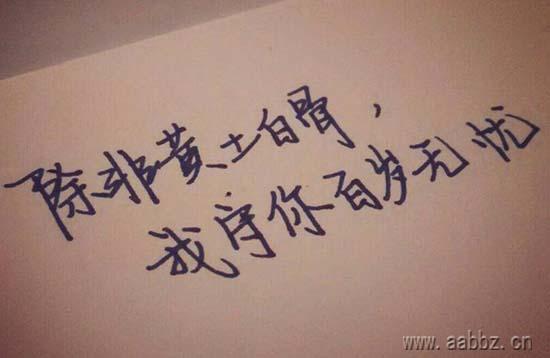 除非黄土白骨，
我守你百岁无忧
www.aabbz.cn